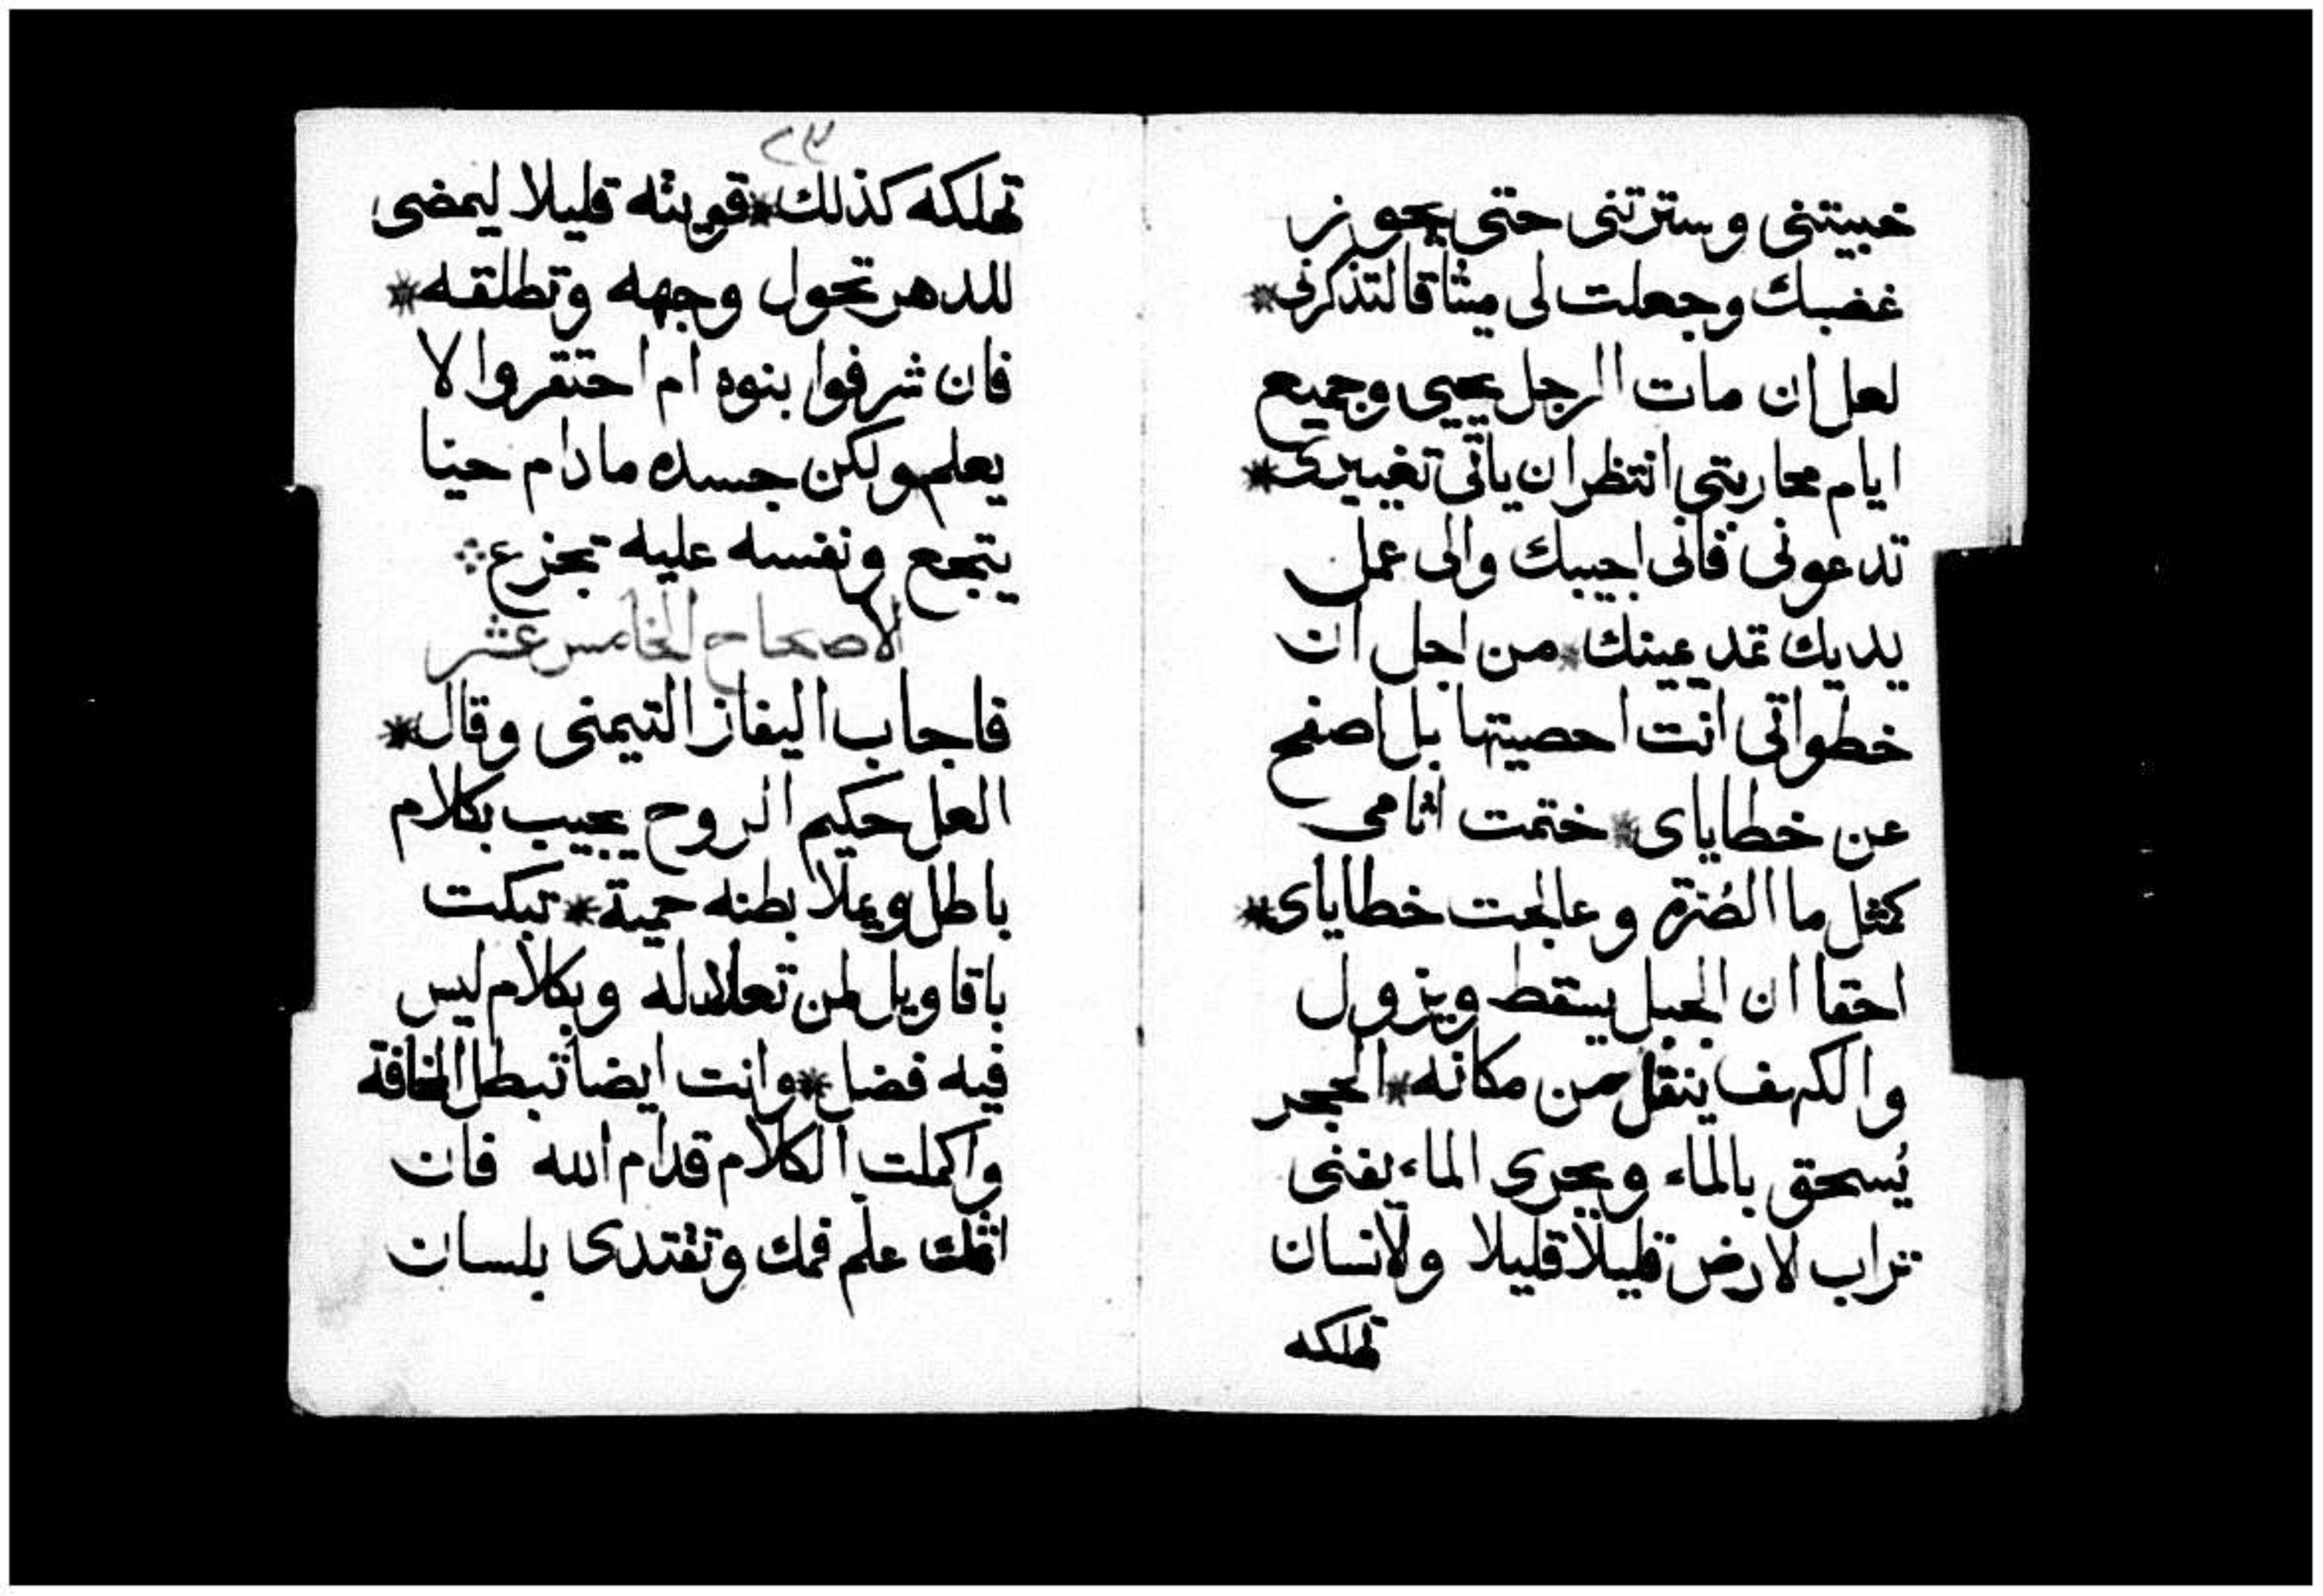 خبيتنى وسترتنى حتى يجوز
غضبك وجعلت لى ميثاقا لتذكرنى*
لعل ان مات الرجل يحيى وجميع
ايام محاربتى انتظر ان ياتى تغييرى*
تدعونى فانى اجيبك والى عمل
يديك تمد عينك*من اجل ان
خطواتى انت احصيتها بل اصفح
عن خطاياى*ختمت اثامى
كمثل ما الصُرّة وعالجت خطاياى*
احقا ان الجبل يسقط ويزول
والكهف ينقل من مكانه*الحجر
يُسحق بالماء وبجرى الماء يفنى
تراب لارض قليلا قليلا ولانسان
تهلكه
٢٣
تهلكه كذلك*قويته قليلا ليمضى
للدهر تحول وجهه وتطلقه*
فان شرفوا بنوه ام احتقروا لا
يعلم ولكن جسده مادام حيا
يتجع ونفسه عليه تجزع
الاصحاح الخامس عشر
فاجاب اليفاز التيمنى وقال*
العل حكيم الروح يجيب بكلام
باطل ويملا بطنه حمية*تبكت
باقاويل لمن تعلا له وبكلام ليس
فيه فضل*وانت ايضا تبطل المخافة
واكملت الكلام قدام الله فان
اثمك علم فمك وتقتدى بلسان